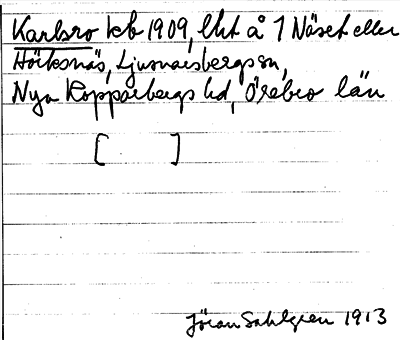 Karlsro kb 1909, lht å 1 Näset eller
Hörksnäs, Ljusnarsbergs sn,
Nya Kopparbergs hd, Örebro län
[ ]
Jöran Sahlgren 1913